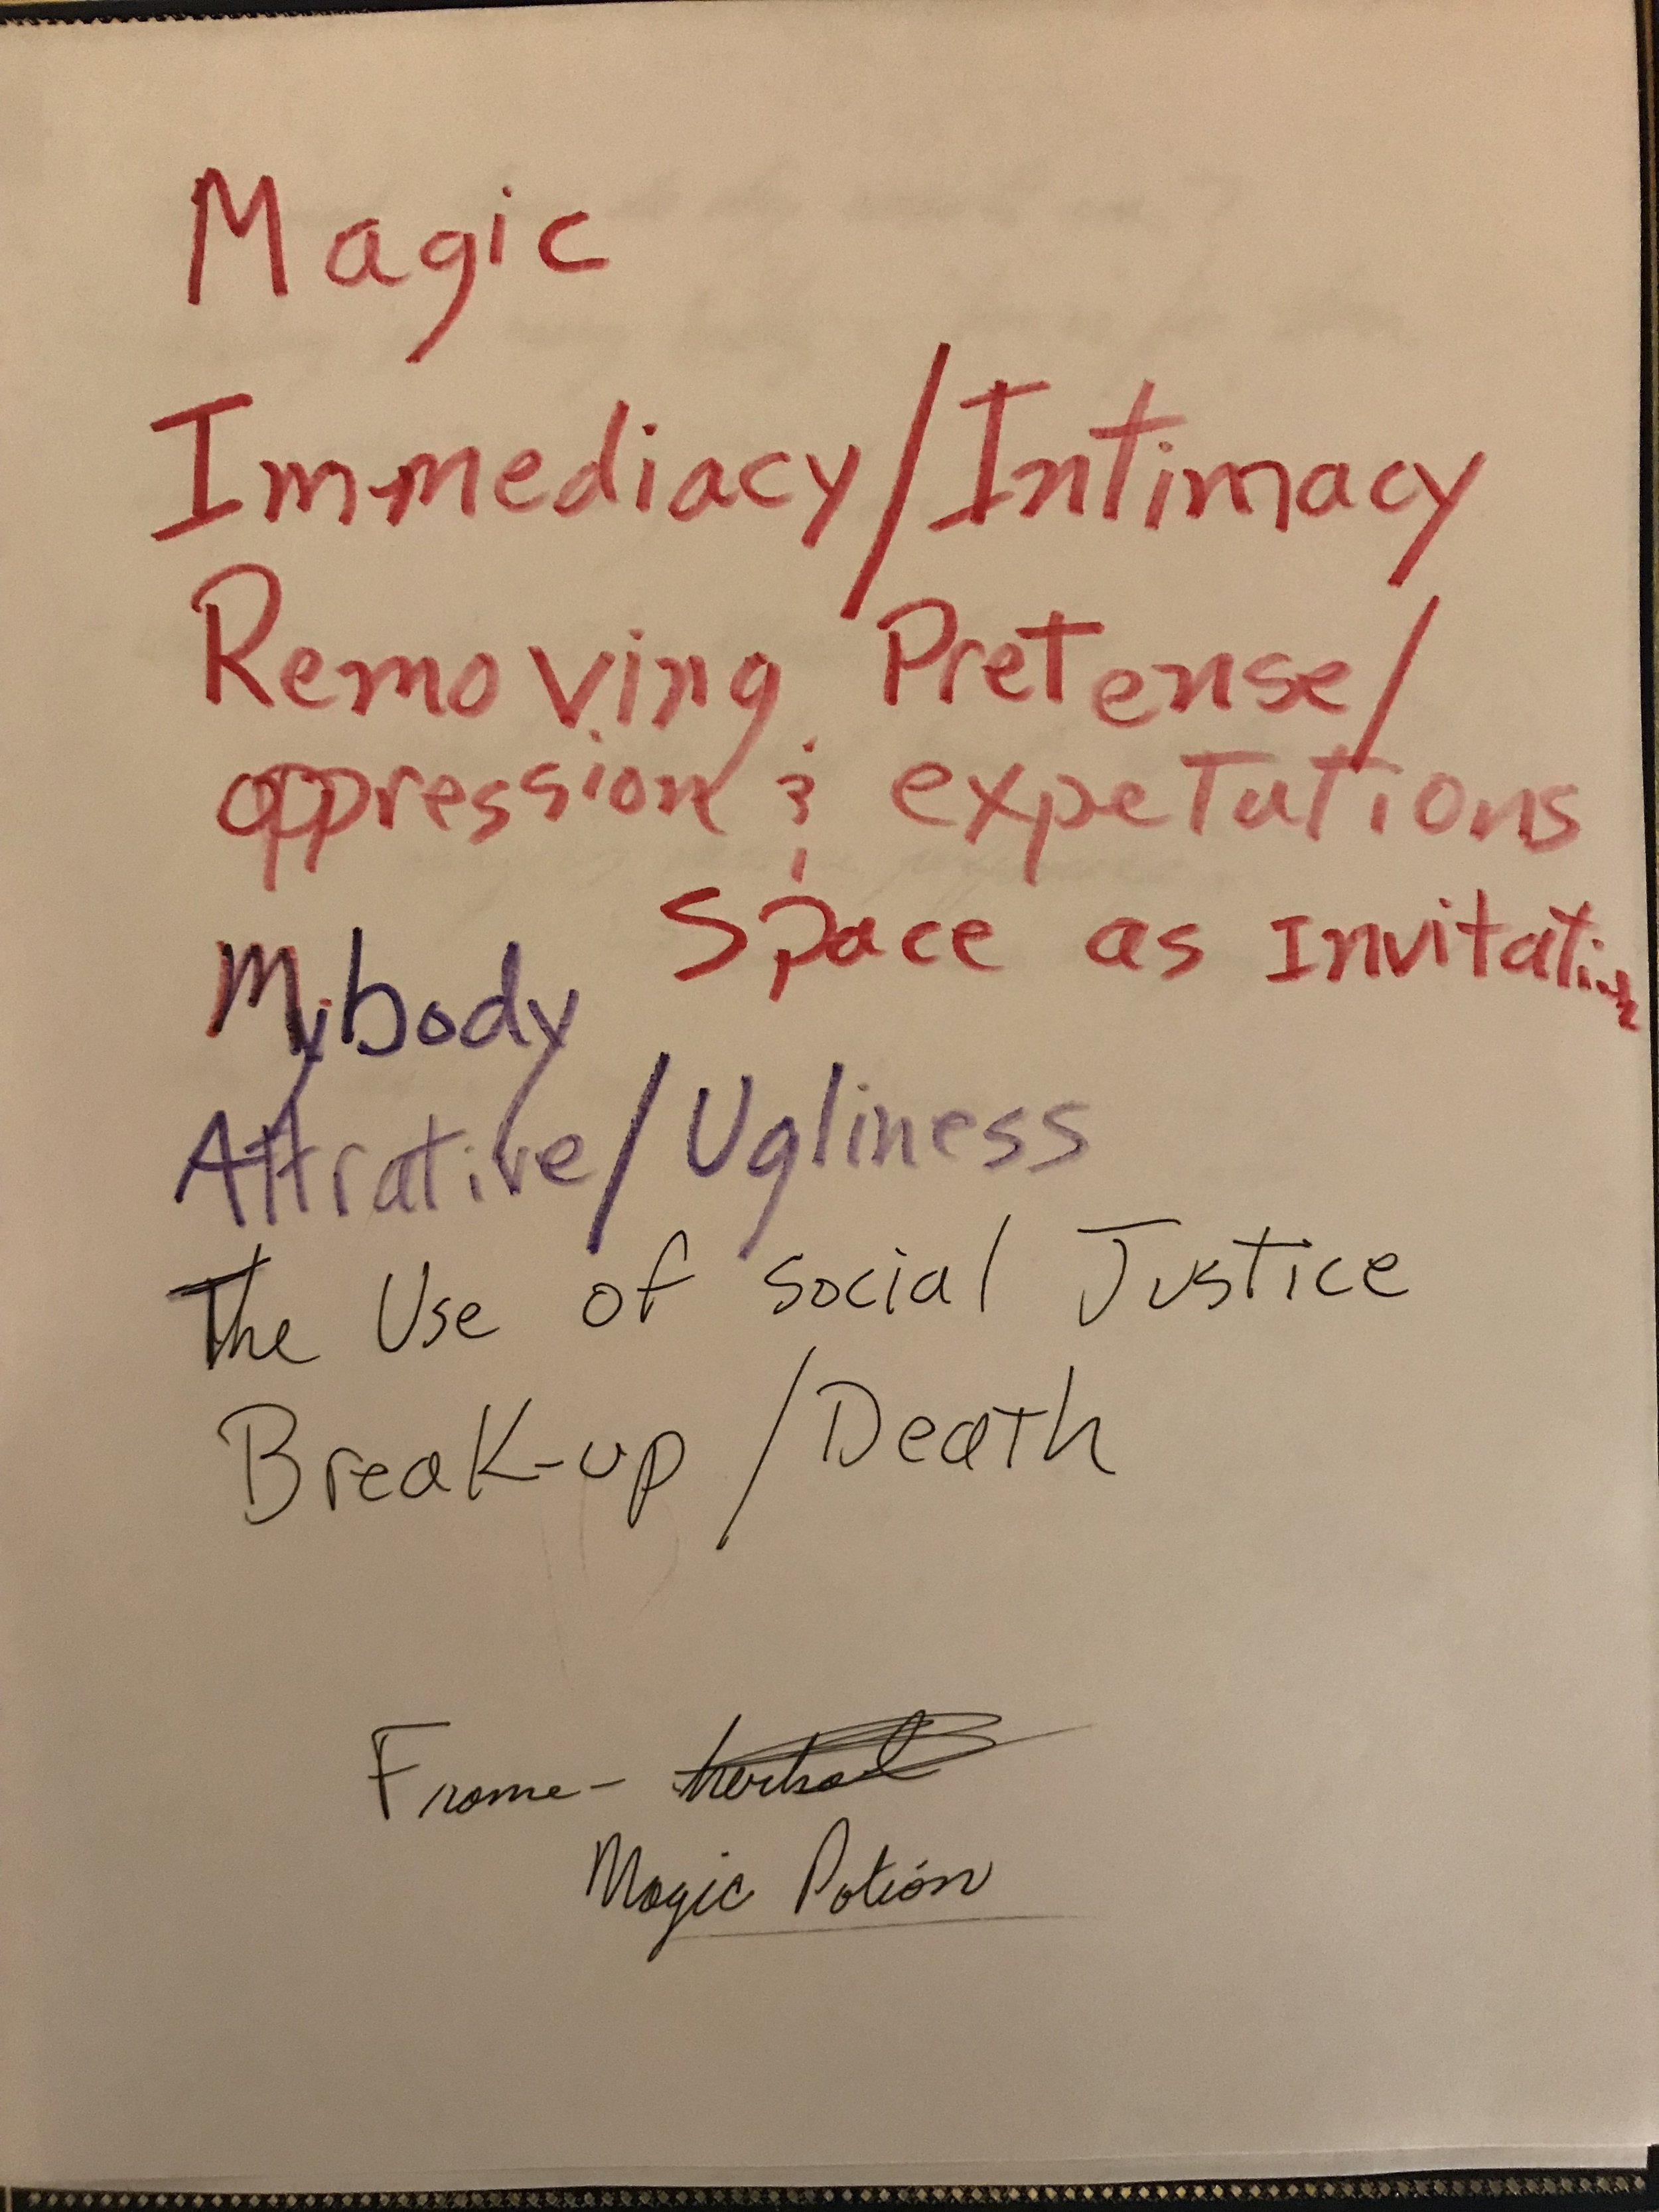 Magic
Immediacy/Intimacy
Removing Pretense/
oppression & expetations
Space as Invitation
My body
Attrative/Ugliness
The Use of Social Justice
Break-up/Death
Frame-
Magic Potion